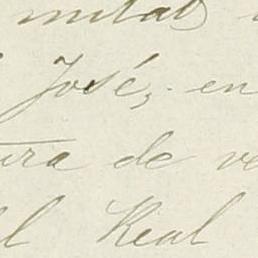 mitad
José, en
ura de ve
el Real